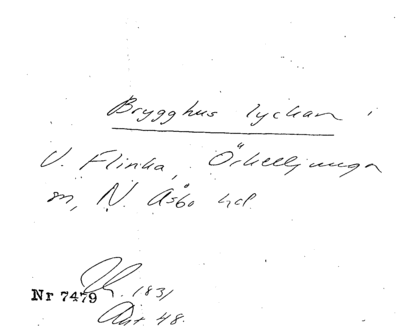 Brygghus lyckan
V. Flinka, Örkelljunga
sn, N. Åsbo hd.
Nr 7479 1831
Akt 48.